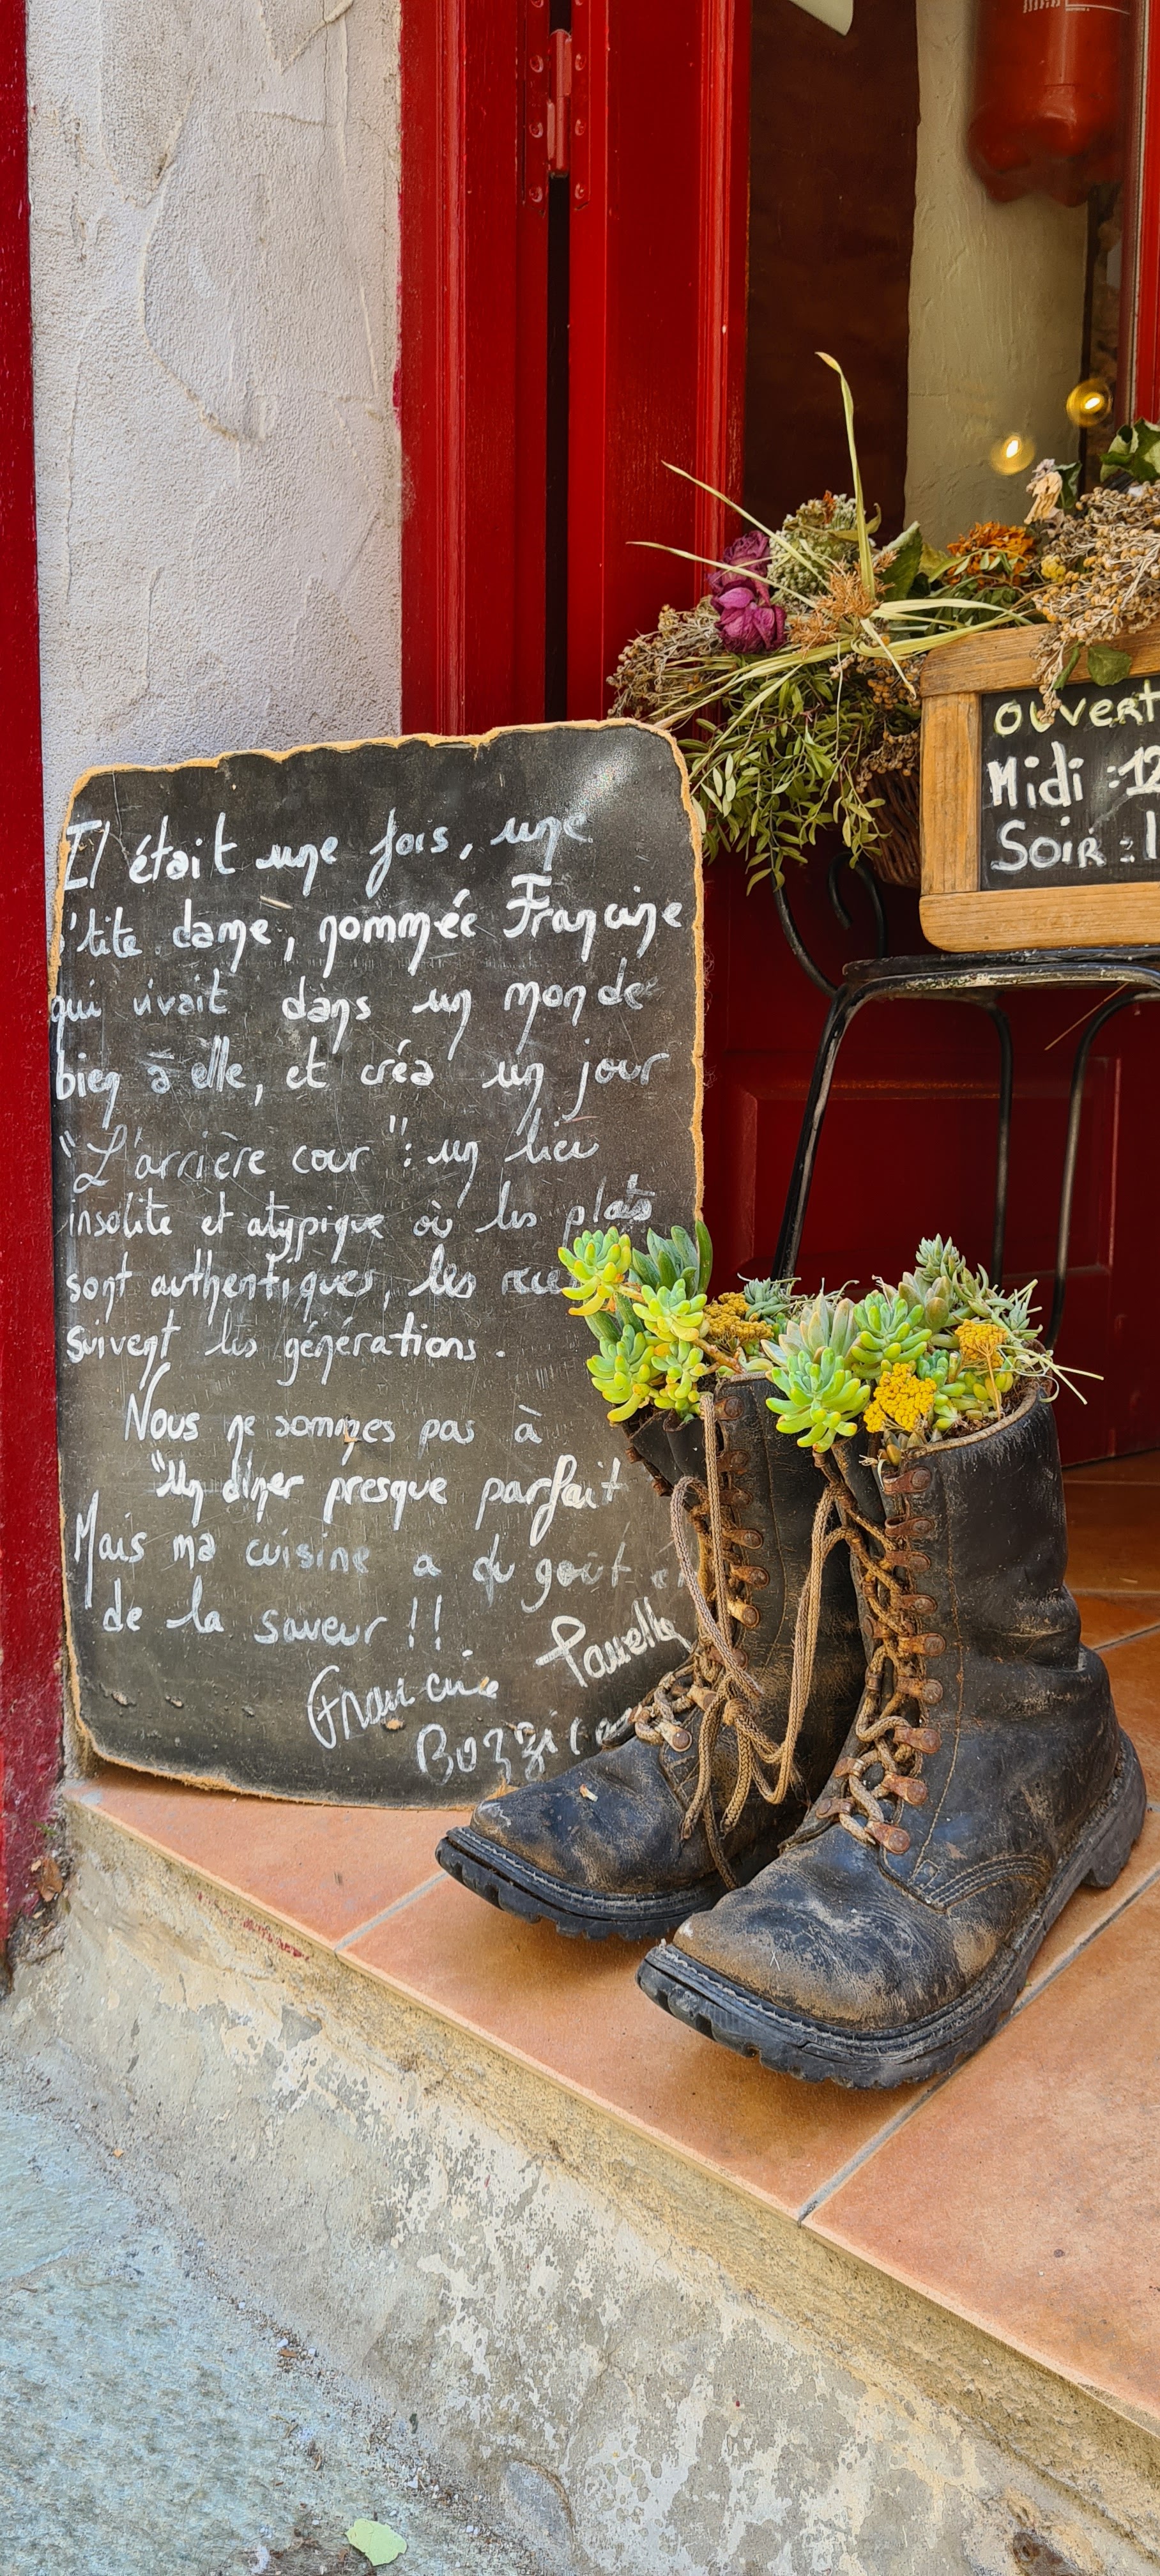 Il était une fois, une
p'tite dame, nommée Francine
qui vivait dans un monde
bien à elle, et créa un jour
"L'arrière cour": un lieu
insolite et atypique où les plats
sont authentiques, les
suivent les générations.
Nous ne sommes pas à
"Un dîner presque parfait
Mais ma cuisine a du goût
de la saveur !!
Francine
OUVERT
Midi : 12
Soir : 1